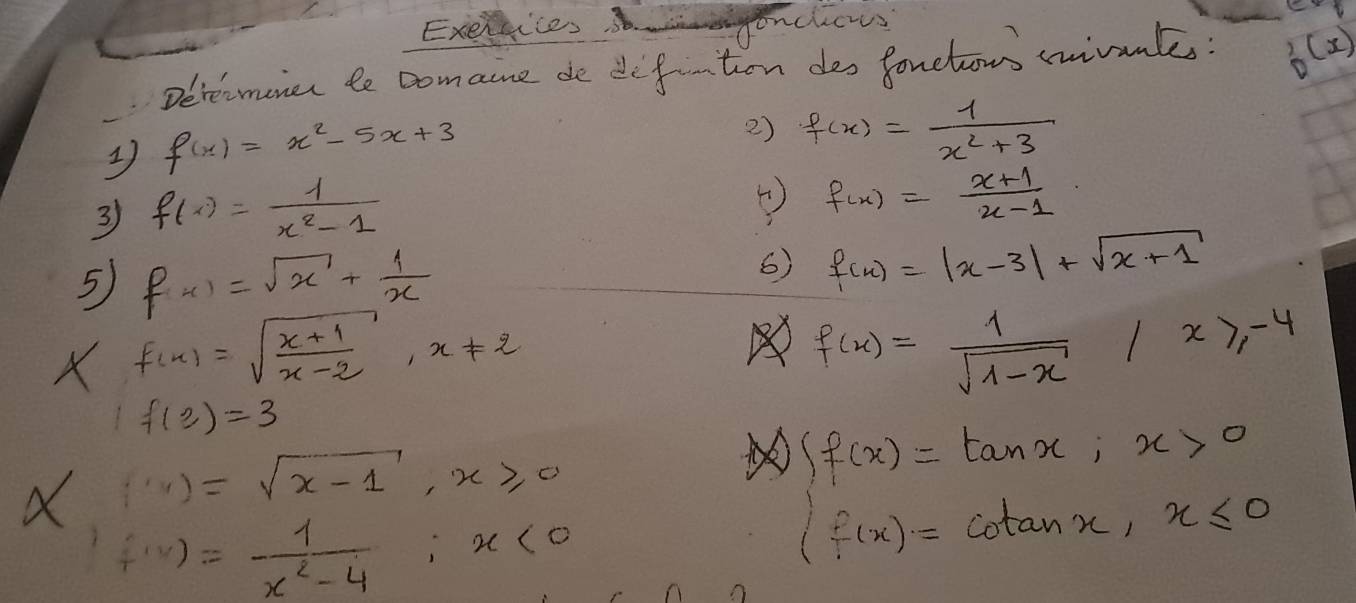 Exercices fonctions
Déterminer le Domaine de définition des fonctions suivantes :
1) f(x) = x² - 5x + 3
2) f(x) = 1/(x² + 3)
3) f(x) = 1/(x² - 1)
4) f(x) = (x+1)/(x-1)
5) f(x) = √x + 1/x
6) f(x) = |x-3| + √(x+1)
f(x) = √((x+1)/(x-2)) , x ≠ 2
f(2) = 3
f(x) = 1/√(1-x) / x ≥ -4
f(x) = √(x-1) , x ≥ 0
f(x) = 1/(x²-4) ; x < 0
f(x) = tan x ; x > 0
f(x) = cotan x , x ≤ 0
(x)